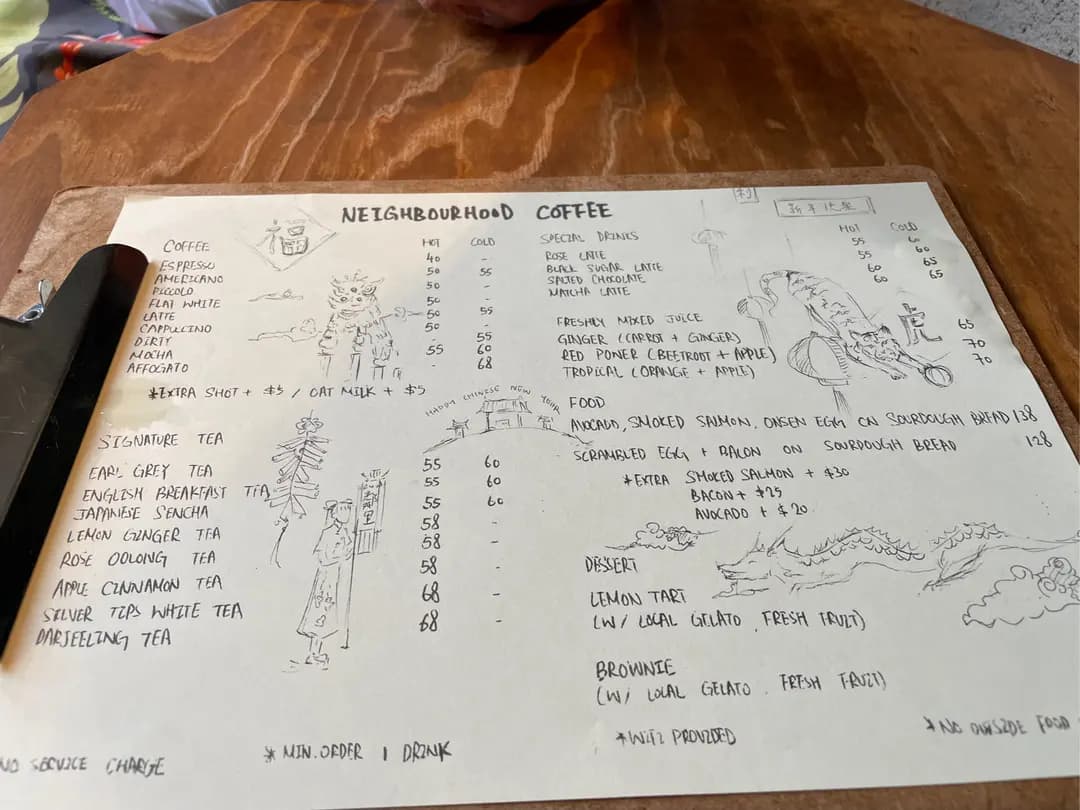 NEIGHBOURHOOD COFFEE
福
新年快樂
COFFEE HOT COLD
ESPRESSO 40 -
AMERICANO 50 55
PICCOLO 50 -
FLAT WHITE 50 -
LATTE 50 55
CAPPUCCINO 50 -
DIRTY - 55
MOCHA 55 60
AFFOGATO - 68
*EXTRA SHOT + $5 / OAT MILK + $5
HAPPY CHINESE NEW YEAR
SIGNATURE TEA
EARL GREY TEA 55 60
ENGLISH BREAKFAST TEA 55 60
JAPANESE SENCHA 55 60
LEMON GINGER TEA 58 -
ROSE OOLONG TEA 58 -
APPLE CINNAMON TEA 58 -
SILVER TIPS WHITE TEA 68 -
DARJEELING TEA 68 -
SPECIAL DRINKS HOT COLD
ROSE LATTE 55 60
BLACK SUGAR LATTE 55 60
SALTED CHOCOLATE 60 65
MATCHA LATTE 60 65
虎
FRESHLY MIXED JUICE
GINGER (CARROT + GINGER) 65
RED POWER (BEETROOT + APPLE) 70
TROPICAL (ORANGE + APPLE) 70
FOOD
AVOCADO, SMOKED SALMON, ONSEN EGG ON SOURDOUGH BREAD 138
SCRAMBLED EGG + BACON ON SOURDOUGH BREAD 128
*EXTRA SMOKED SALMON + $30
BACON + $25
AVOCADO + $20
DESSERT
LEMON TART
(W/ LOCAL GELATO, FRESH FRUIT)
BROWNIE
(W/ LOCAL GELATO, FRESH FRUIT)
NO SERVICE CHARGE
*MIN. ORDER 1 DRINK
*WIFI PROVIDED
*NO OUTSIDE FOOD